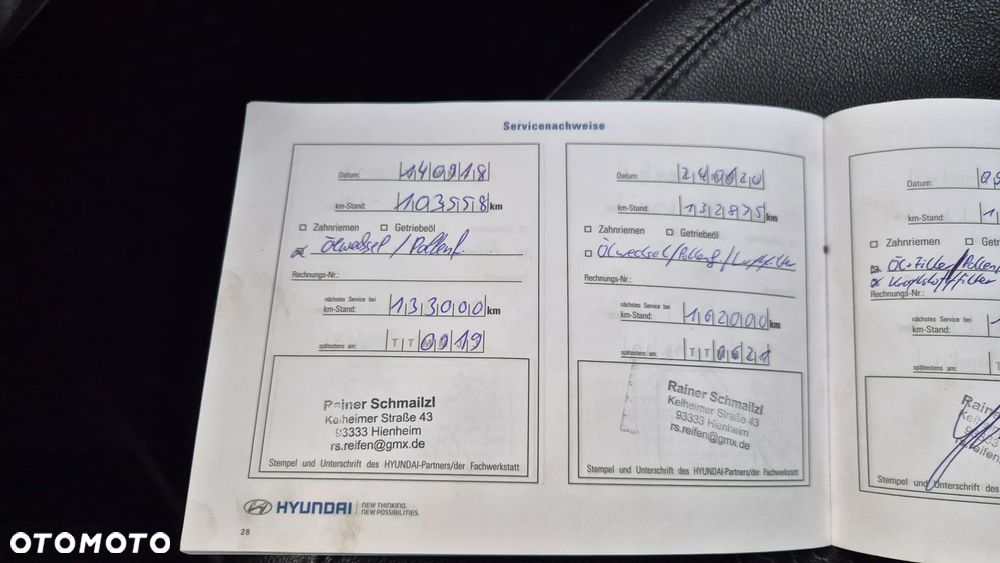 Servicenachweise
Datum: 140918
km-Stand: 103558 km
Zahnriemen Getriebeöl
Ölwechsel/Pollenf.
Rechnungs-Nr.:
nächstes Service bei
km-Stand: 133000 km
spätestens am: TT 0919
Rainer Schmailzl
Kelheimer Straße 43
93333 Hienheim
rs.reifen@gmx.de
Stempel und Unterschrift des HYUNDAI-Partners/der Fachwerkstatt
Datum: 240620
km-Stand: 132875 km
Zahnriemen Getriebeöl
Ölwechsel/Pollenf./Luftfilter
Rechnungs-Nr.:
nächstes Service bei
km-Stand: 162000 km
spätestens am: TT 0621
Rainer Schmailzl
Kelheimer Straße 43
93333 Hienheim
rs.reifen@gmx.de
Stempel und Unterschrift des HYUNDAI-Partners/der Fachwerkstatt
Datum:
km-Stand:
Zahnriemen
Öl-Filter/Pollen
Kraftstofffilter
Rechnungs-Nr.:
nächstes Service bei
km-Stand:
spätestens am:
Stempel und Unterschrift des
HYUNDAI NEW THINKING.
NEW POSSIBILITIES.
28
OTOMOTO